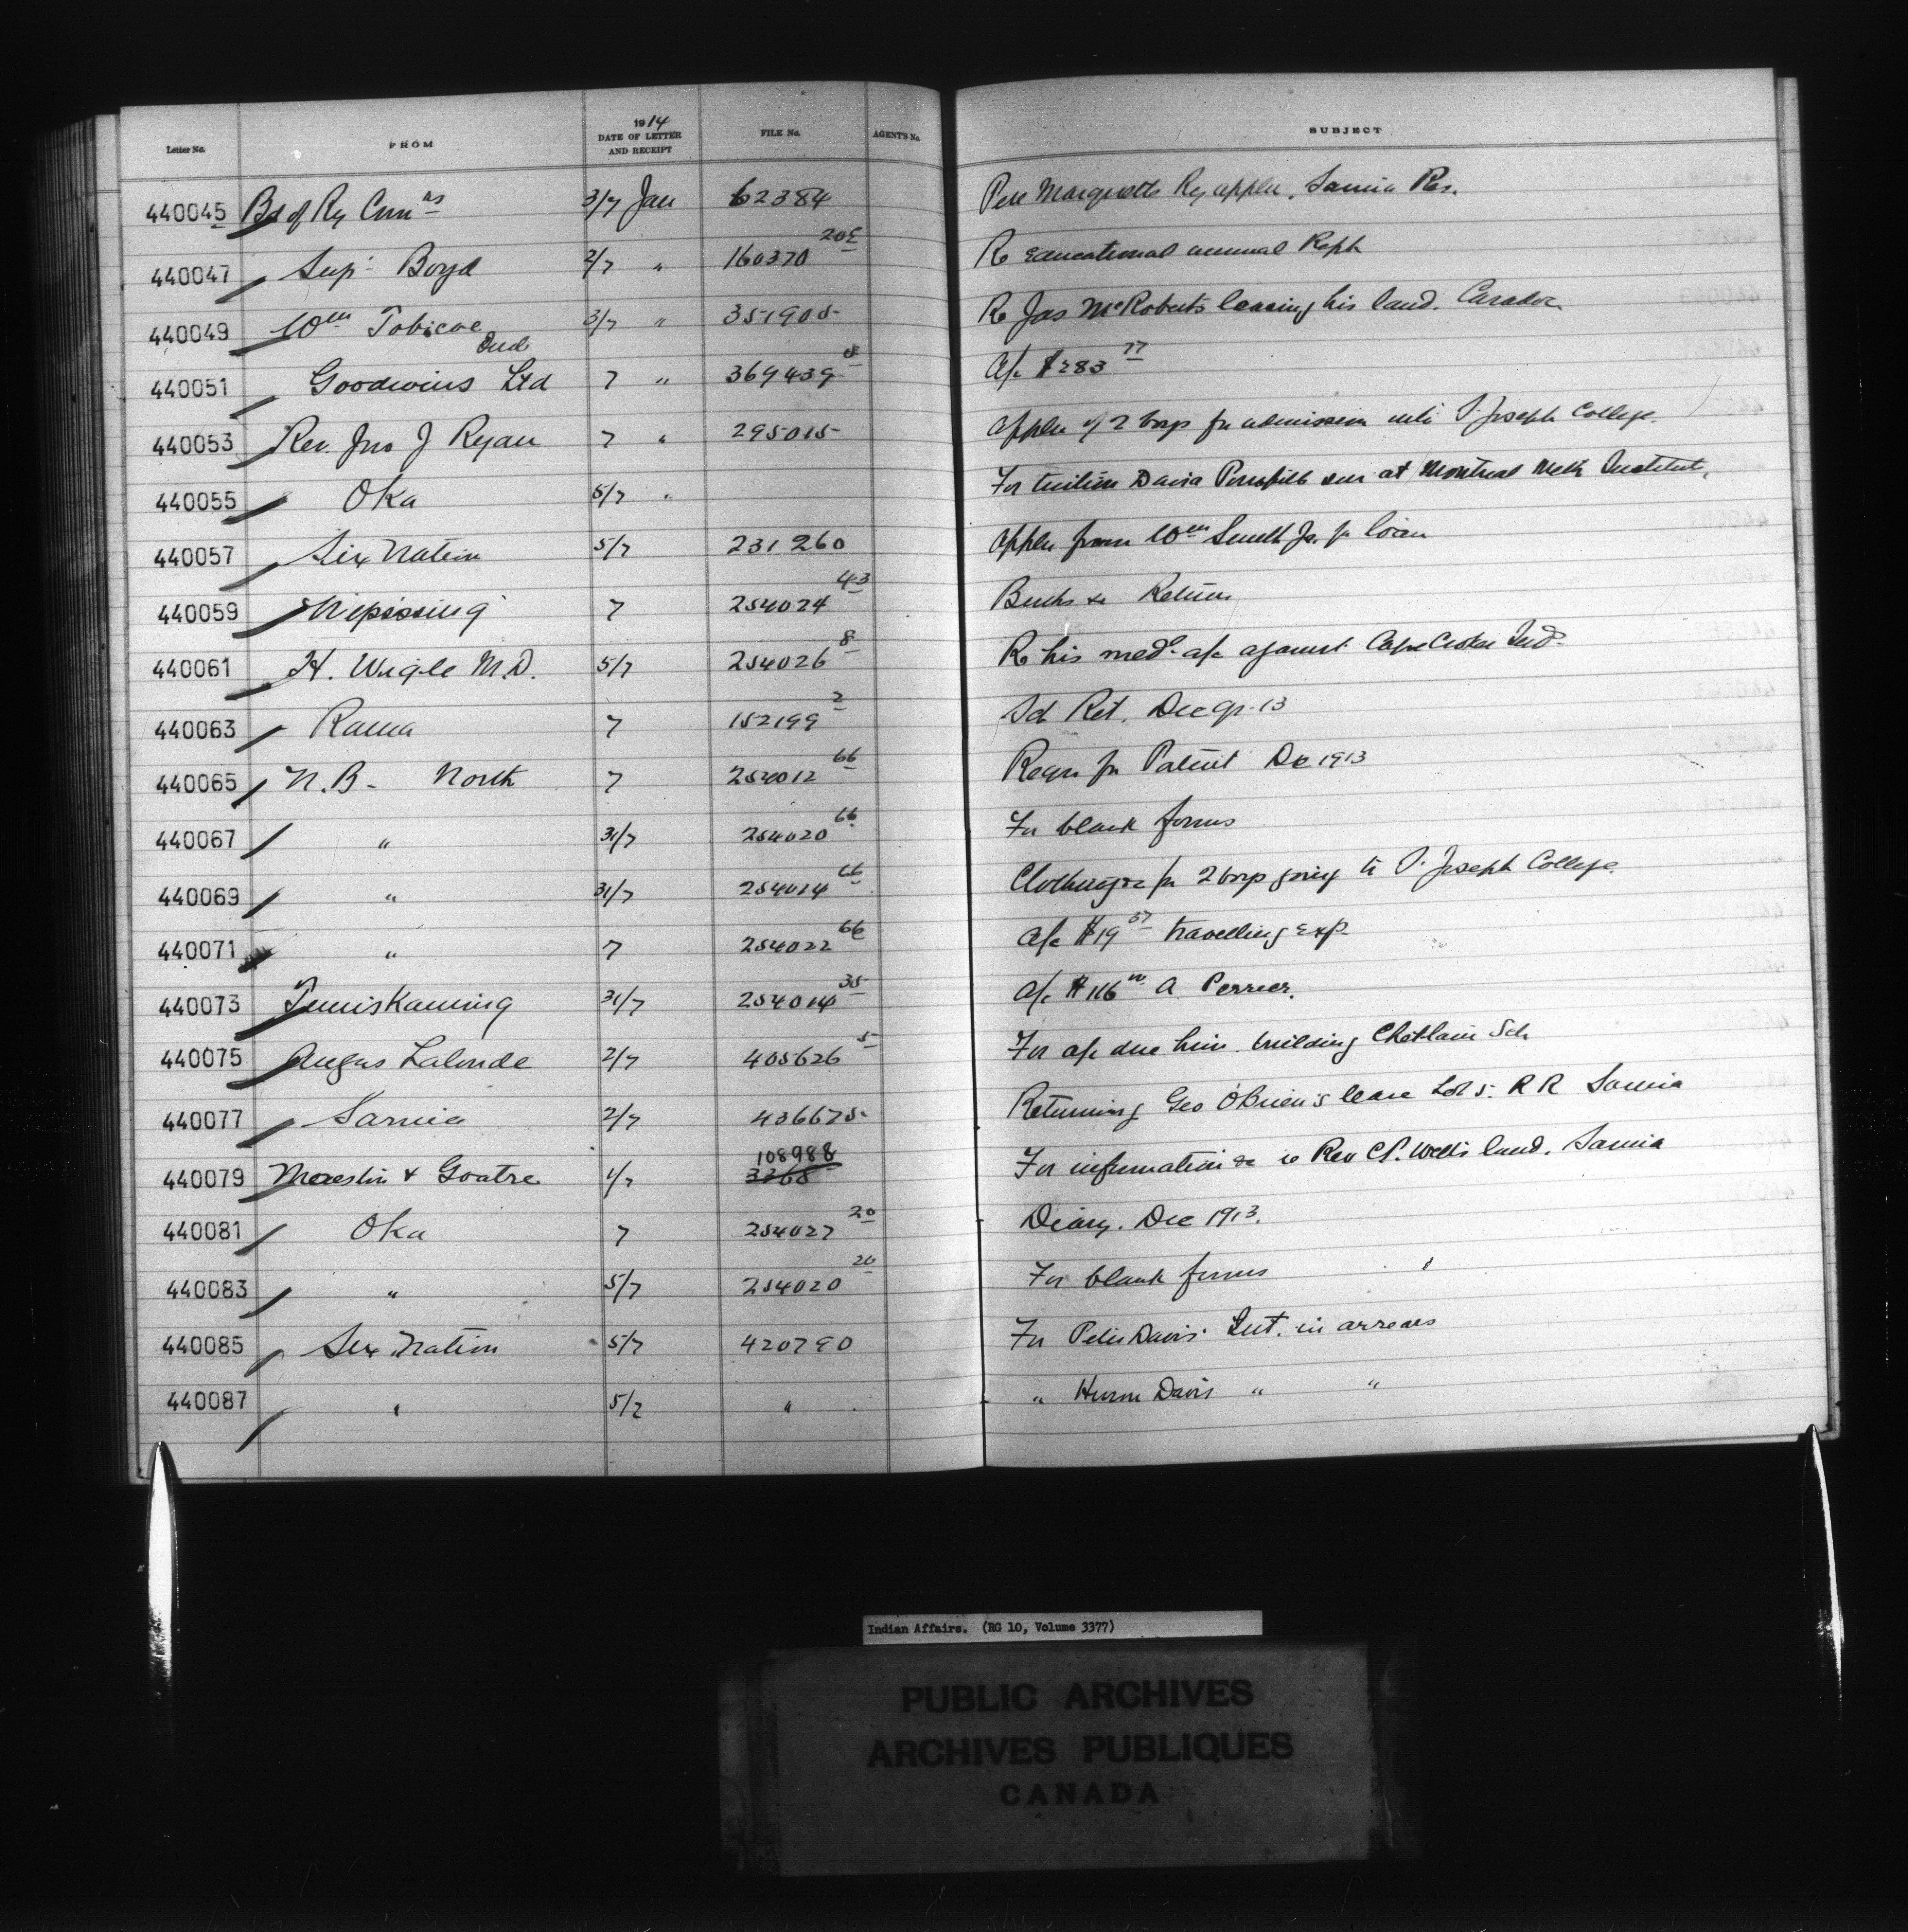 Letter No. FROM 1914 DATE OF LETTER AND RECEIPT FILE No. AGENT'S No. SUBJECT
440045 Bd of Ry Cmrs 3/7 Jan 62384 Pere Marquette Ry applcn, Sarnia Res.
440047 Supt Boyd 2/7 " 160370 20E Re Educational annual Rept
440049 Wm Tobicoe Ind 3/7 " 351905 Re Jas McRoberts leasing his land. Caradoc
440051 Goodwins Ltd 7 " 369439 A/c $283 77
440053 Rev. Jno J Ryan 7 " 295015 Applcn of 2 boys for admission into St Joseph College.
440055 Oka 5/7 " For tuition David son at Montreal Institut.
440057 Six Nation 5/7 231260 Applcn from Wm Smith Jr. for loan
440059 Nipissing 7 254024 43 & Return
440061 H. Wigle M.D. 5/7 254026 8 Re his med. a/c against Cape Croker Ind.
440063 Rama 7 152199 2 Sch Ret. Dec qr. 13
440065 N.B. - North 7 254012 66 Reqn for Patent Dec 1913
440067 " 31/7 254020 66 For blank forms
440069 " 31/7 254014 66 Clothing &c for 2 boys going to St Joseph College.
440071 " 7 254022 66 A/c $19 57 travelling exp.
440073 Temiskaming 31/7 254014 35 A/c $116 00 A Perrier.
440075 Angus Lalonde 2/7 405626 5 For a/c due him building Sch
440077 Sarnia 2/7 436675 Returning Geo O'Brien's lease Lot 5. R R Sarnia
440079 & Goatre 1/7 108988 3268 For information &c re Rev Wells land. Sarnia
440081 Oka 7 254027 20 Diary. Dec 1913.
440083 " 5/7 254020 20 For blank forms
440085 Six Nation 5/7 420790 For Peter Davis Int. in arrears
440087 " 5/7 " " Davis " "
Indian Affairs. (RG 10, Volume 3377)
PUBLIC ARCHIVES
ARCHIVES PUBLIQUES
CANADA